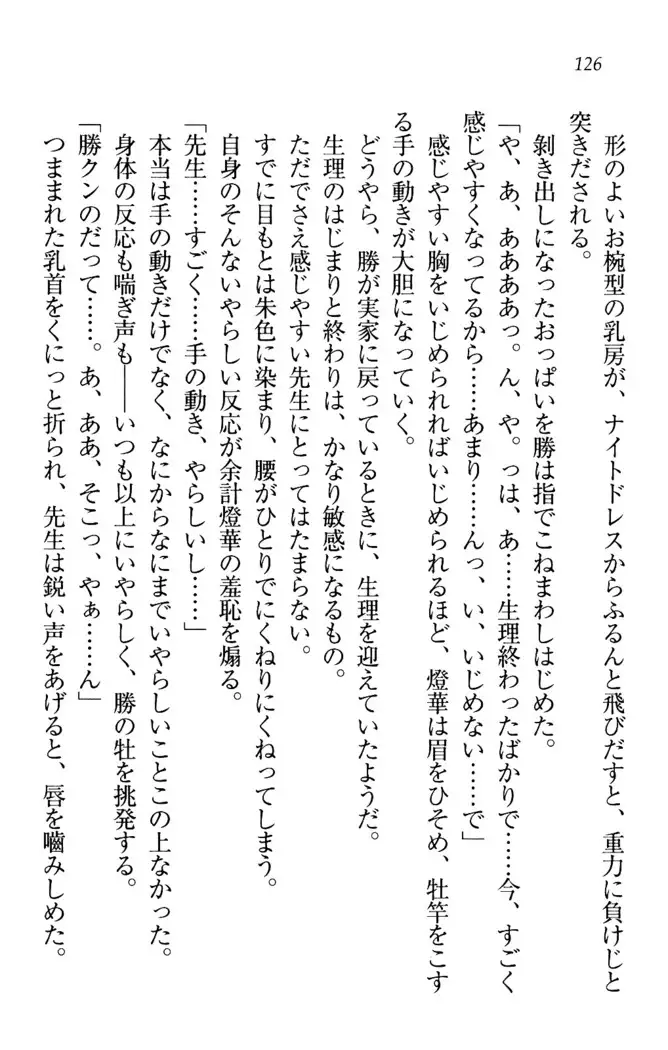 126
形のよいお椀型の乳房が、ナイトドレスからふるんと飛びだすと、重力に負けじと
突きだされる。
剝き出しになったおっぱいを勝は指でこねまわしはじめた。
「や、あ、ああああっ。ん、や。っは、あ……生理終わったばかりで……今、すごく
感じやすくなってるから……あまり……んっ、い、いじめない……で」
感じやすい胸をいじめられればいじめられるほど、燈華は眉をひそめ、牡竿をこす
る手の動きが大胆になっていく。
どうやら、勝が実家に戻っているときに、生理を迎えていたようだ。
生理のはじまりと終わりは、かなり敏感になるもの。
ただでさえ感じやすい先生にとってはたまらない。
すでに目もとは朱色に染まり、腰がひとりでにくねりにくねってしまう。
自身のそんないやらしい反応が余計燈華の羞恥を煽る。
「先生……すごく……手の動き、やらしいし……」
本当は手の動きだけでなく、なにからなにまでいやらしいことこの上なかった。
身体の反応も喘ぎ声も――いつも以上にいやらしく、勝の牡を挑発する。
「勝クンのだって……。あ、ああ、そこっ、やぁ……ん」
つままれた乳首をくにっと折られ、先生は鋭い声をあげると、唇を嚙みしめた。